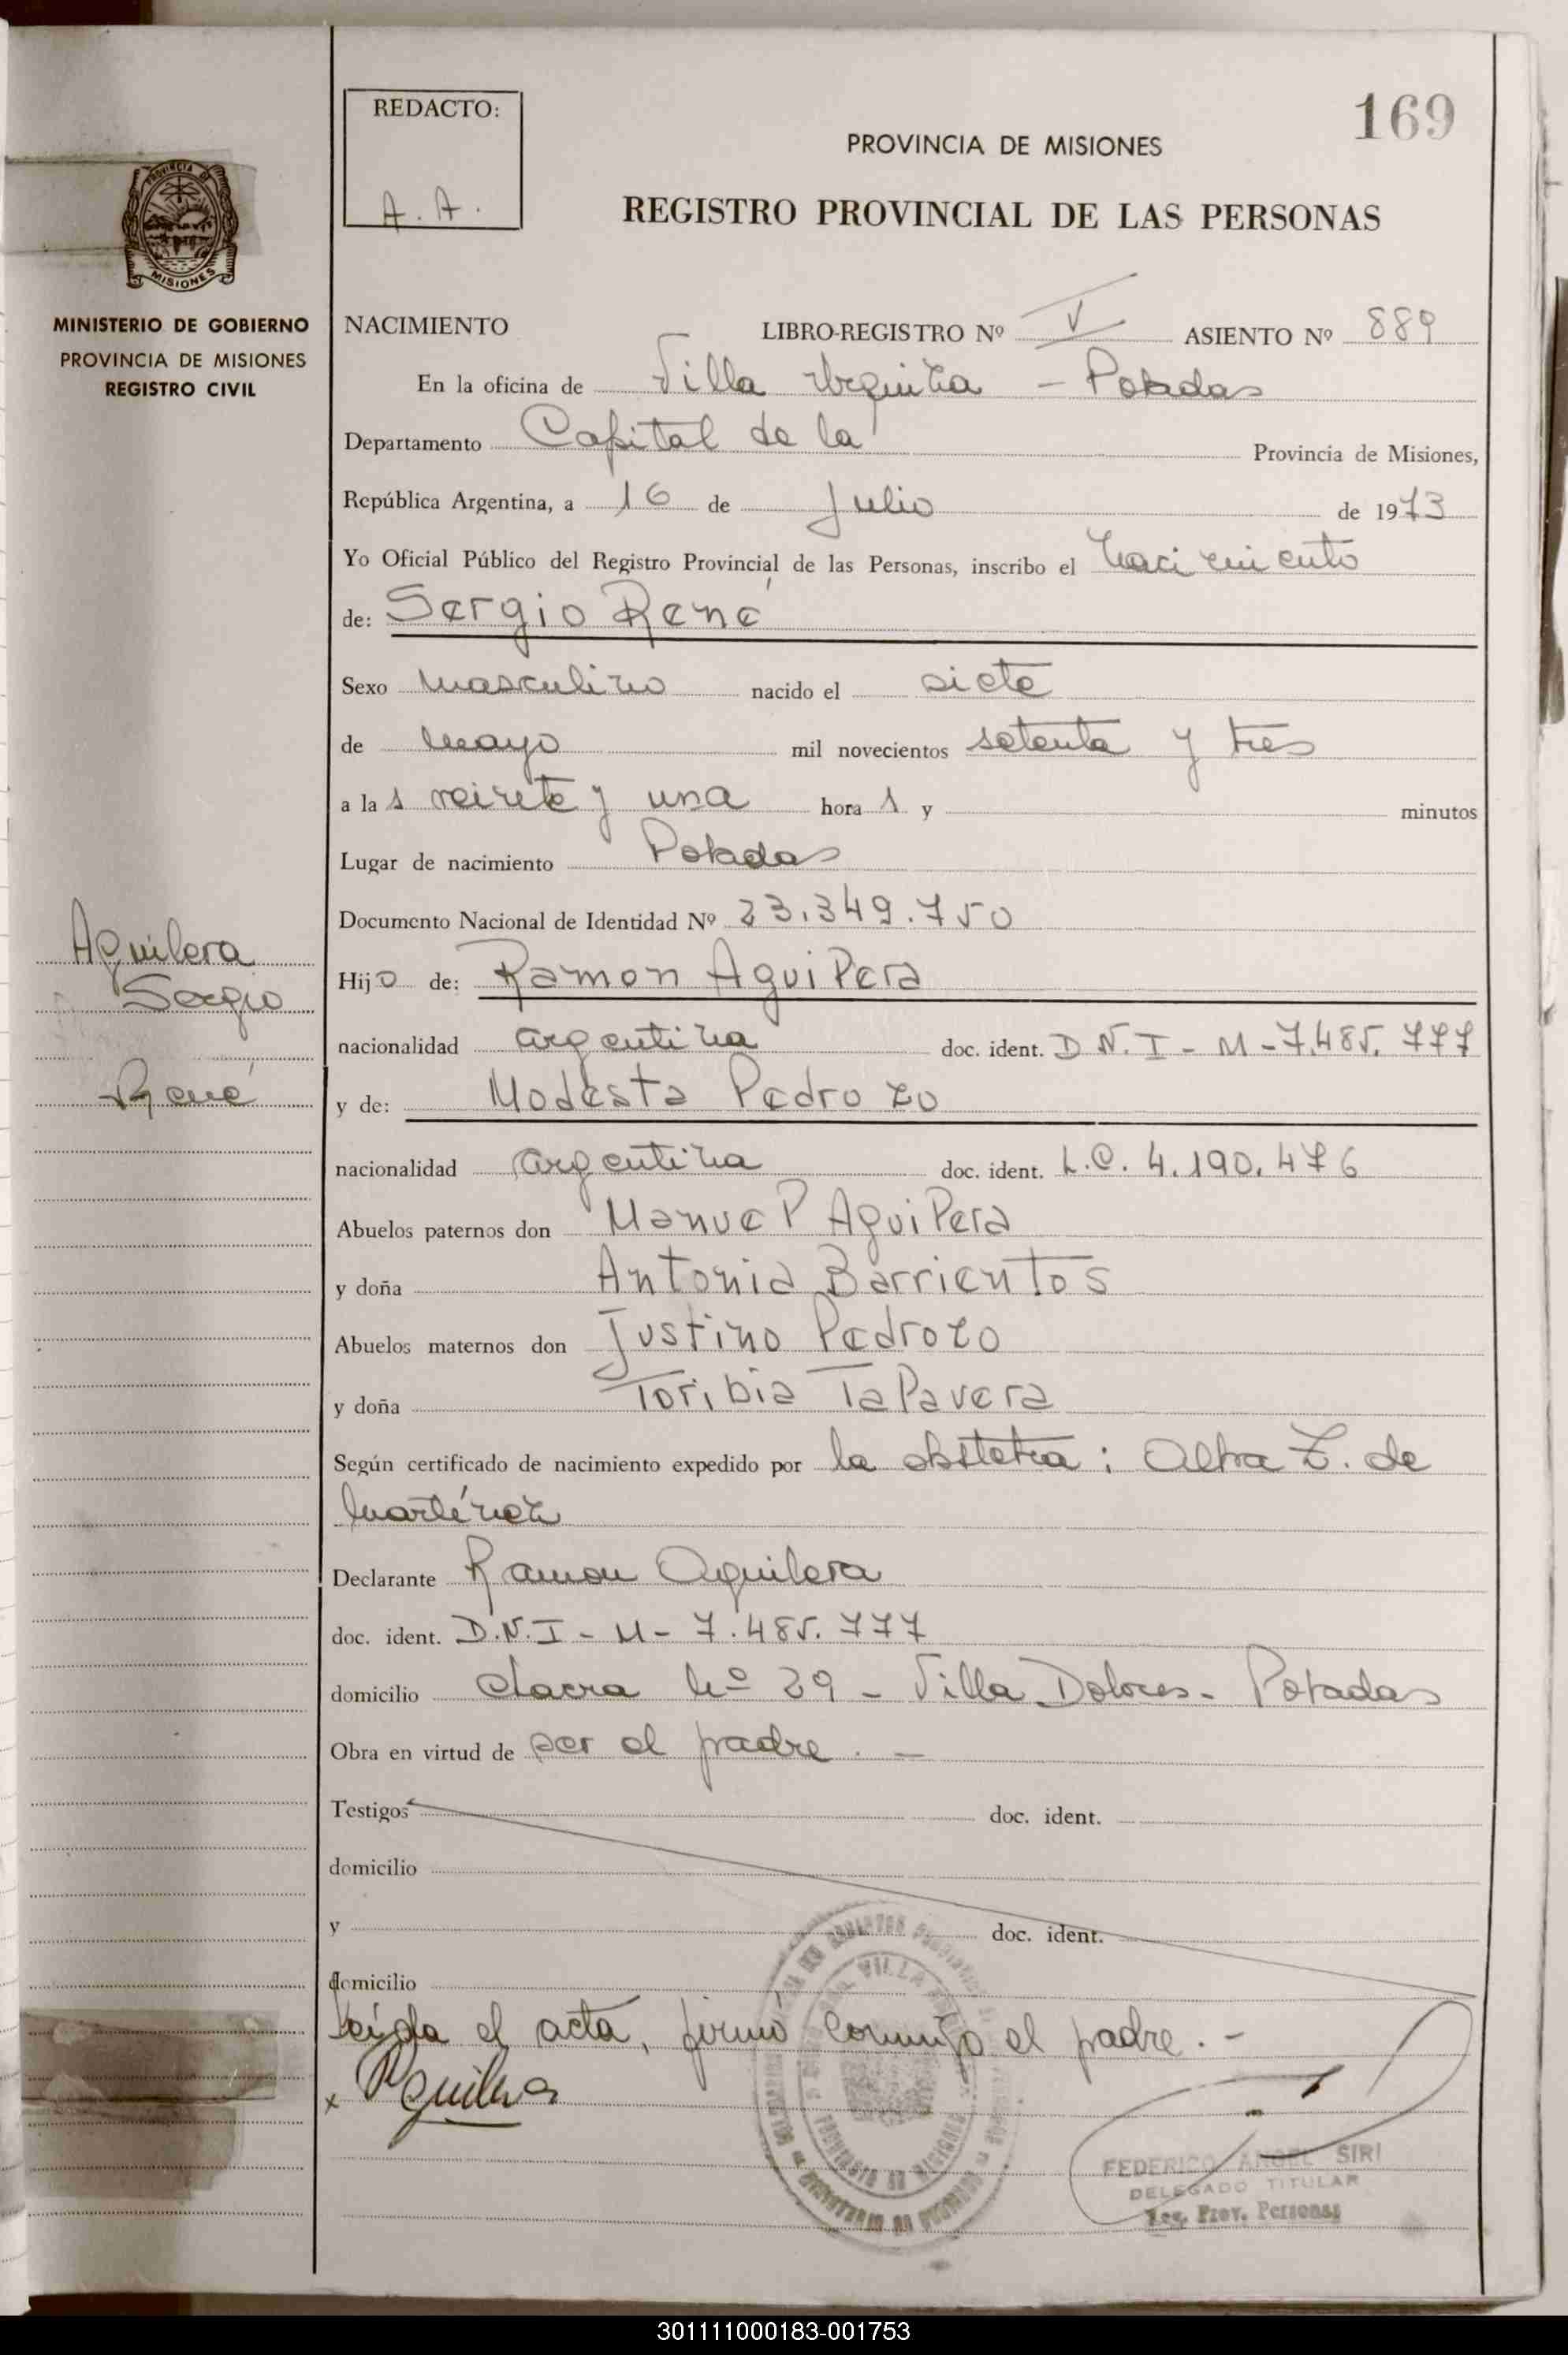 169
REDACTO:
A. A.
PROVINCIA DE MISIONES
REGISTRO PROVINCIAL DE LAS PERSONAS
PROVINCIA DE
MISIONES
MINISTERIO DE GOBIERNO
PROVINCIA DE MISIONES
REGISTRO CIVIL
NACIMIENTO LIBRO-REGISTRO Nº V ASIENTO Nº 889
En la oficina de Villa Urquiza - Posadas
Departamento Capital de la Provincia de Misiones,
República Argentina, a 16 de Julio de 1973
Yo Oficial Público del Registro Provincial de las Personas, inscribo el nacimiento
de: Sergio René
Sexo masculino nacido el siete
de mayo mil novecientos setenta y tres
a la s veinte y una hora s y minutos
Lugar de nacimiento Posadas
Documento Nacional de Identidad Nº 23.349.750
Aguilera
Sergio
René
Hijo de: Ramon Aguilera
nacionalidad argentina doc. ident. D N. I - M - 7.485.777
y de: Modesta Pedrozo
nacionalidad argentina doc. ident. L.C. 4.190.476
Abuelos paternos don Manuel Aguilera
y doña Antonia Barrientos
Abuelos maternos don Justino Pedrozo
y doña Toribia Talavera
Según certificado de nacimiento expedido por la obstetra: Alba Z. de
Martínez
Declarante Ramon Aguilera
doc. ident. D.N.I - M - 7.485.777
domicilio chacra Nº 29 - Villa Dolores - Posadas
Obra en virtud de ser el padre. -
Testigos doc. ident.
domicilio
y doc. ident.
domicilio
Leída el acta, firmó conmigo el padre. -
x Aguilera
FEDERICO ANGEL SIRI
DELEGADO TITULAR
Reg. Prov. Personas
301111000183-001753